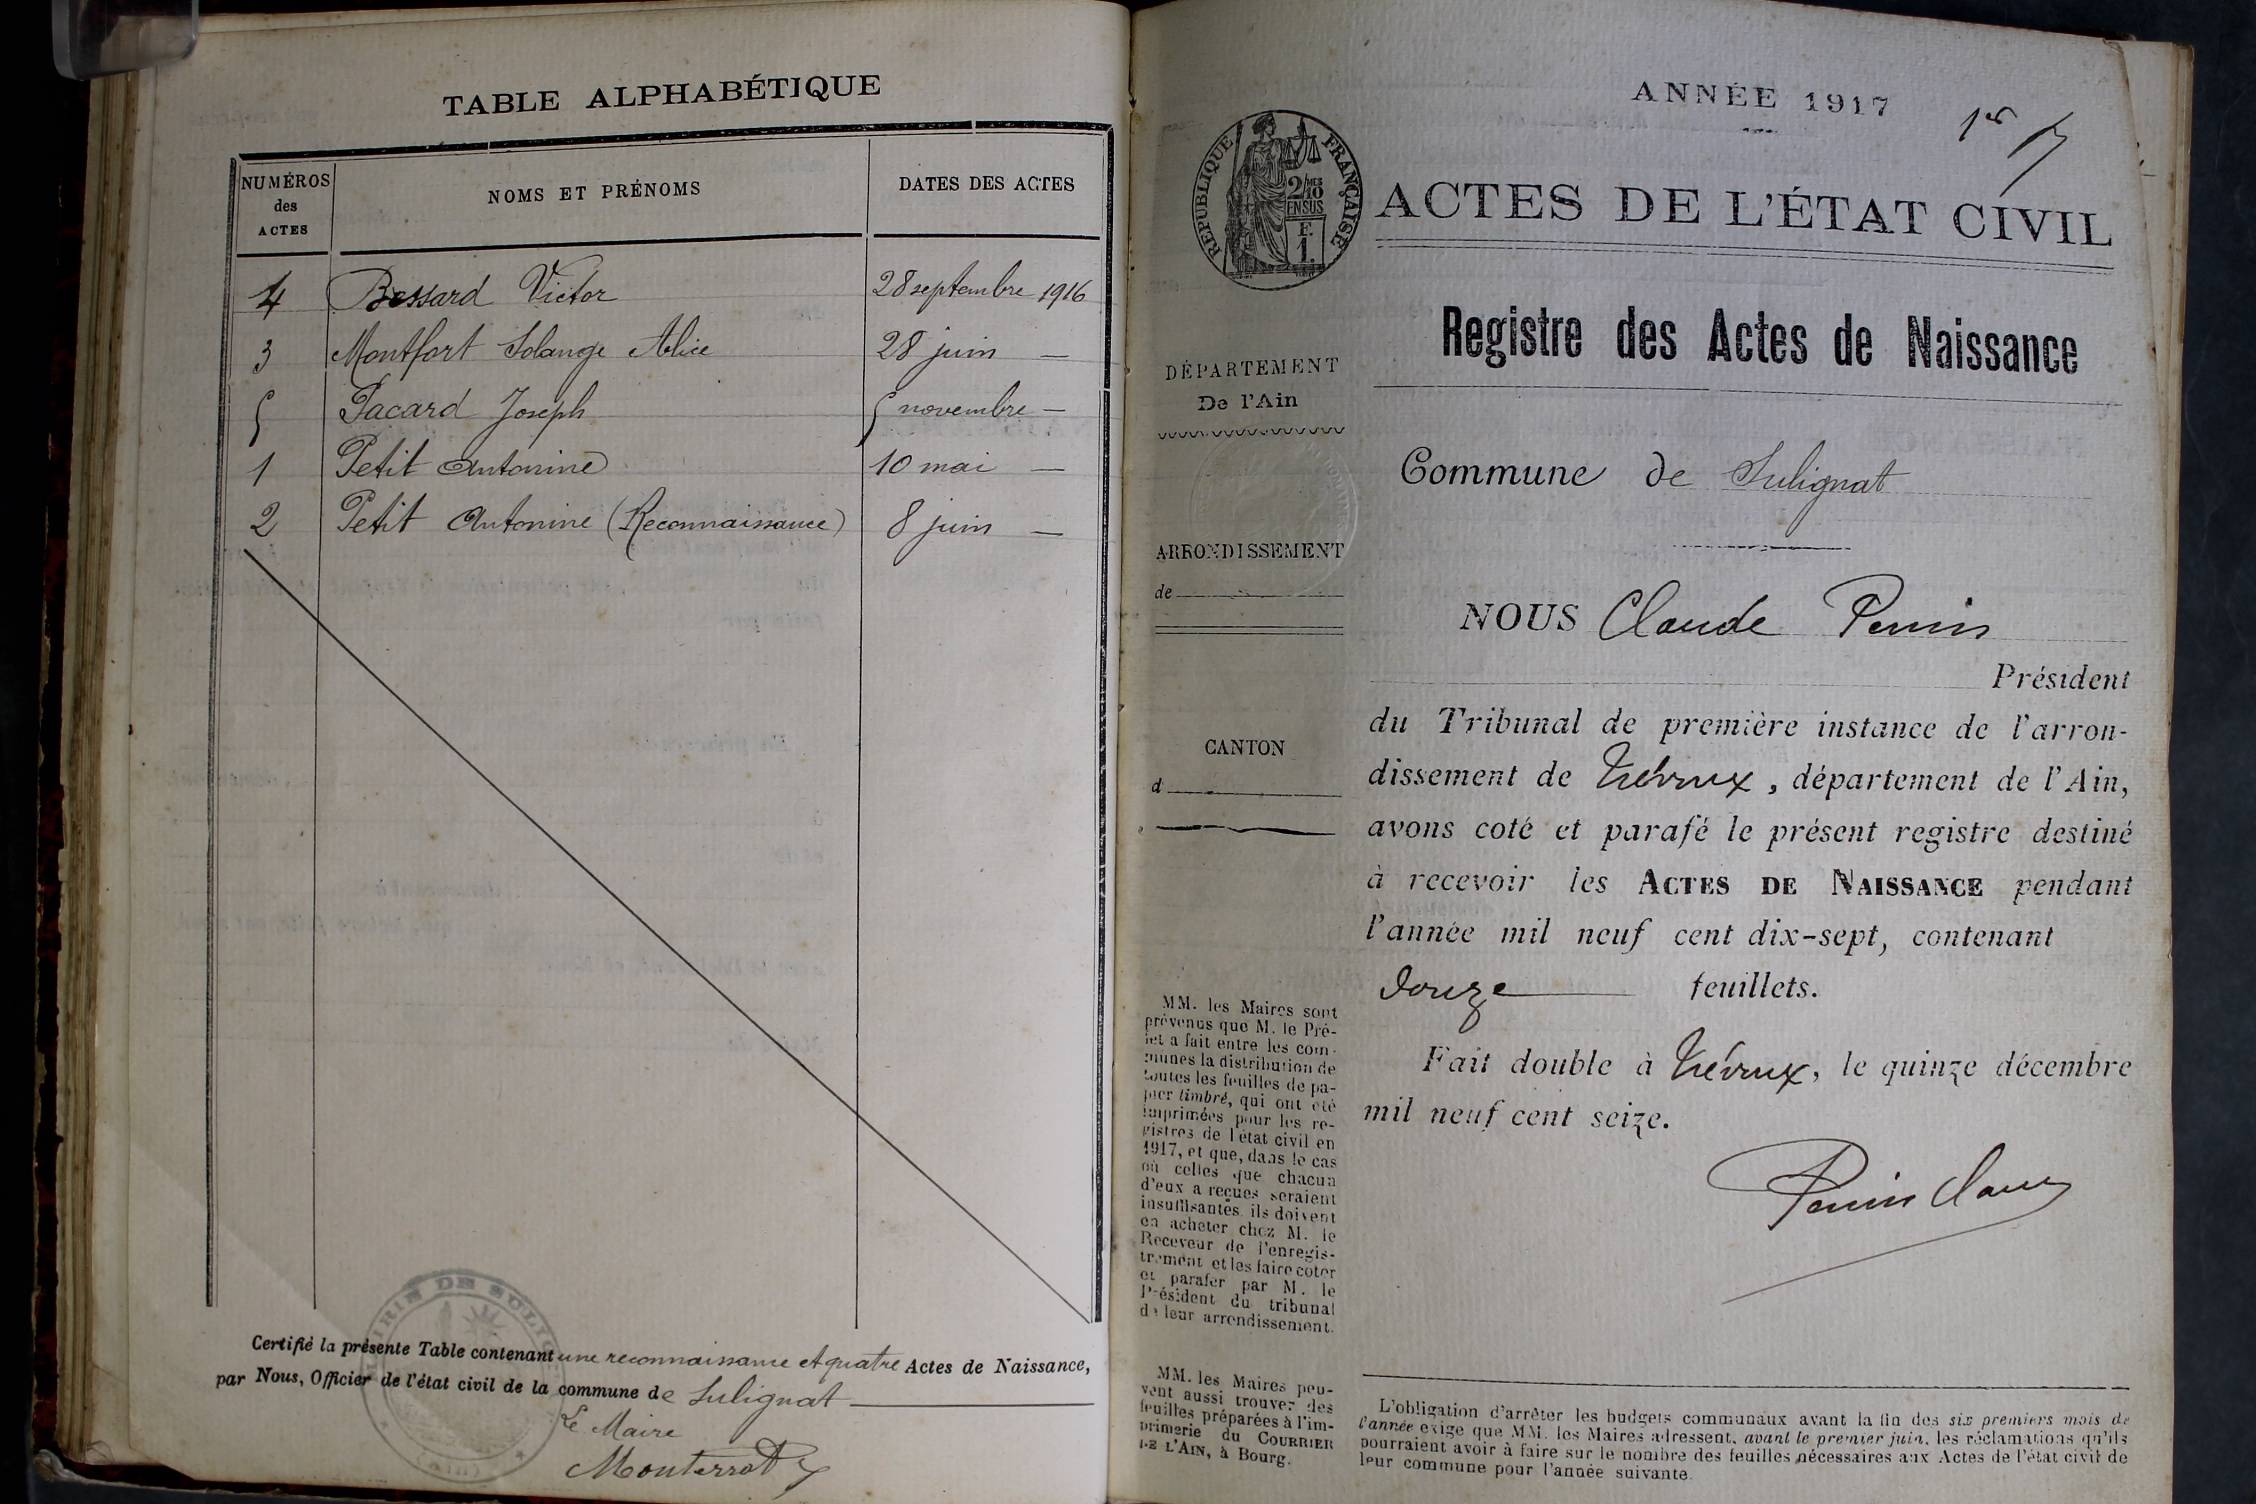 TABLE ALPHABÉTIQUE
NUMÉROS
des
ACTES
NOMS ET PRÉNOMS
DATES DES ACTES
4 Bessard Victor 28 septembre 1916
3 Montfort Solange Alice 28 juin —
5 Pacard Joseph 5 novembre —
1 Petit Antonine 10 mai —
2 Petit Antonine (Reconnaissance) 8 juin —
Certifié la présente Table contenant une reconnaissance et quatre Actes de Naissance,
par Nous, Officier de l'état civil de la commune de Sulignat
Le Maire
ANNÉE 1917
1er
RÉPUBLIQUE FRANÇAISE
2/10
MES
EN SUS
F.
1.
ACTES DE L'ÉTAT CIVIL
Registre des Actes de Naissance
DÉPARTEMENT
De l'Ain
Commune de Sulignat
ARRONDISSEMENT
de
CANTON
d
NOUS Claude Perrin
Président
du Tribunal de première instance de l'arron-
dissement de Trévoux, département de l'Ain,
avons coté et parafé le présent registre destiné
à recevoir les ACTES DE NAISSANCE pendant
l'année mil neuf cent dix-sept, contenant
douze feuillets.
Fait double à Trévoux, le quinze décembre
mil neuf cent seize.
Perrin Claude
MM. les Maires sont
prévenus que M. le Pré-
fet a fait entre les com-
munes la distribution de
toutes les feuilles de pa-
pier timbré, qui ont été
imprimées pour les re-
gistres de l'état civil en
1917, et que, dans le cas
où celles que chacun
d'eux a reçues seraient
insuffisantes ils doivent
en acheter chez M. le
Receveur de l'enregis-
trement et les faire coter
et parafer par M. le
Président du tribunal
de leur arrondissement.
MM. les Maires peu-
vent aussi trouver des
feuilles préparées à l'im-
primerie du COURRIER
DE L'AIN, à Bourg.
L'obligation d'arrêter les budgets communaux avant la fin des six premiers mois de
l'année exige que MM. les Maires adressent, avant le premier juin, les réclamations qu'ils
pourraient avoir à faire sur le nombre des feuilles nécessaires aux Actes de l'état civil de
leur commune pour l'année suivante.